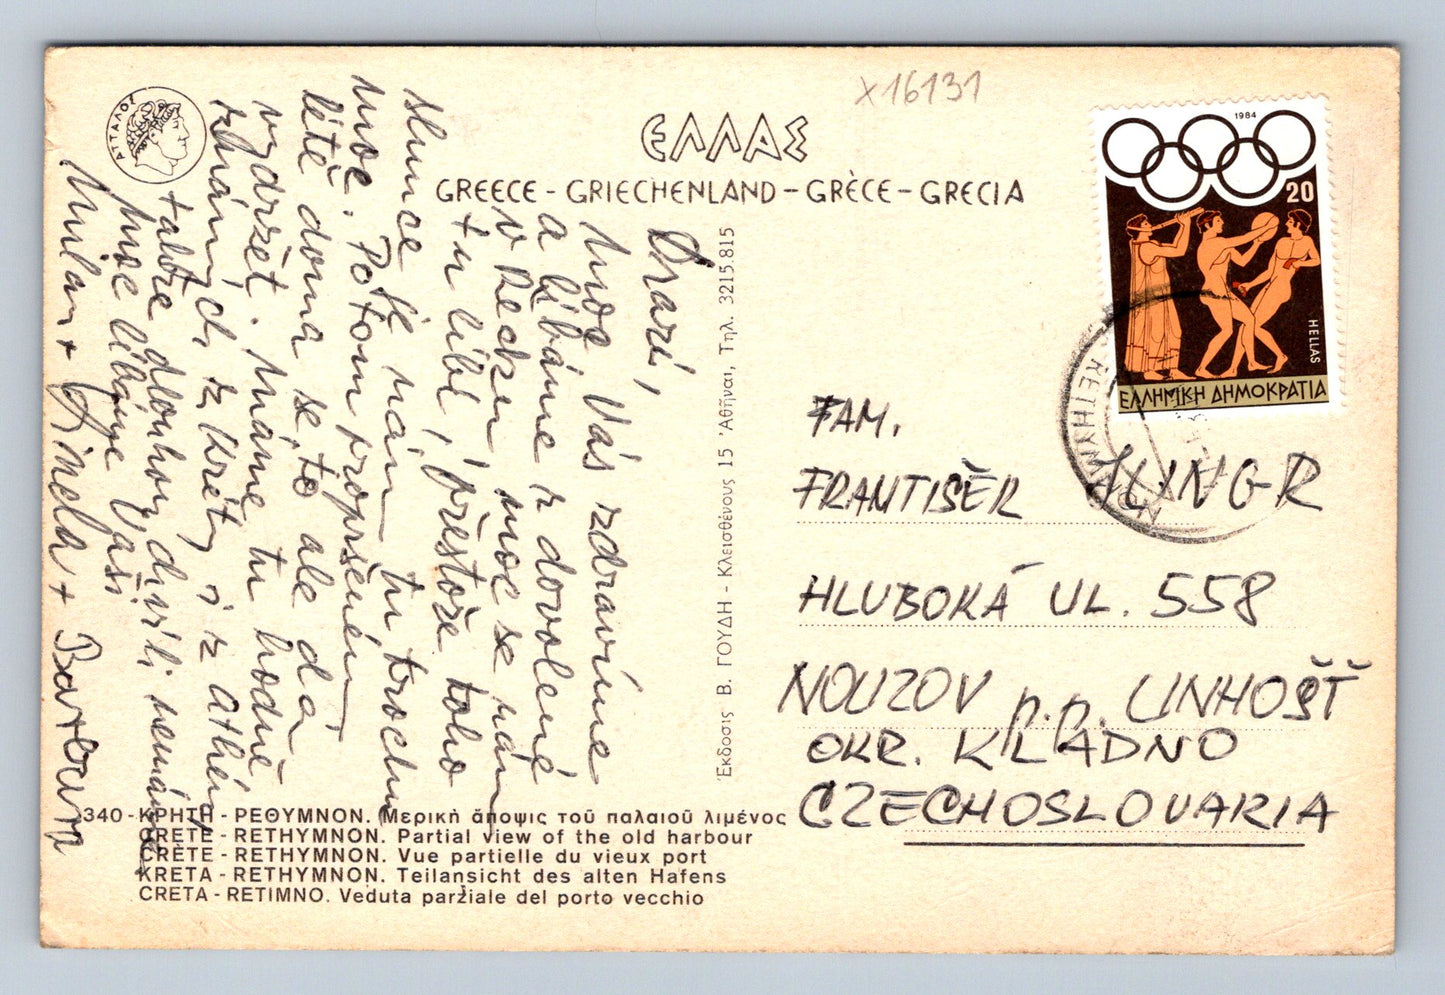 x16131
ΑΤΤΑΛΟΣ
ΕΛΛΑΣ
GREECE - GRIECHENLAND - GRÈCE - GRECIA
1984
20
HELLAS
ΕΛΛΗΝΙΚΗ ΔΗΜΟΚΡΑΤΙΑ
RETHYMNON
Drazí,
moc Vás zdravíme
a líbáme z dovolené
v Řecku, moc se nám
tu líbí, přestože toho
slunce je nám tu trochu
moc. Potom propršeném
létě doma se to ale dá
vydržet. Máme tu hodně
známých z Kréty i z Athén
takže dlouhou chvíli nemáme
Moc líbáme Vaši
Milan + Zinela + Barbara
FAM.
FRANTIŠEK JUNGR
HLUBOKÁ UL. 558
NOUZOV p.p. UNHOŠŤ
OKR. KLADNO
CZECHOSLOVAKIA
Ἔκδοσις Β. ΓΟΥΔΗ - Κλεισθένους 15 Ἀθῆναι, Τηλ. 3215.815
340 - ΚΡΗΤΗ - ΡΕΘΥΜΝΟΝ. Μερικὴ ἄποψις τοῦ παλαιοῦ λιμένος
CRETE - RETHYMNON. Partial view of the old harbour
CRÈTE - RETHYMNON. Vue partielle du vieux port
KRETA - RETHYMNON. Teilansicht des alten Hafens
CRETA - RETIMNO. Veduta parziale del porto vecchio